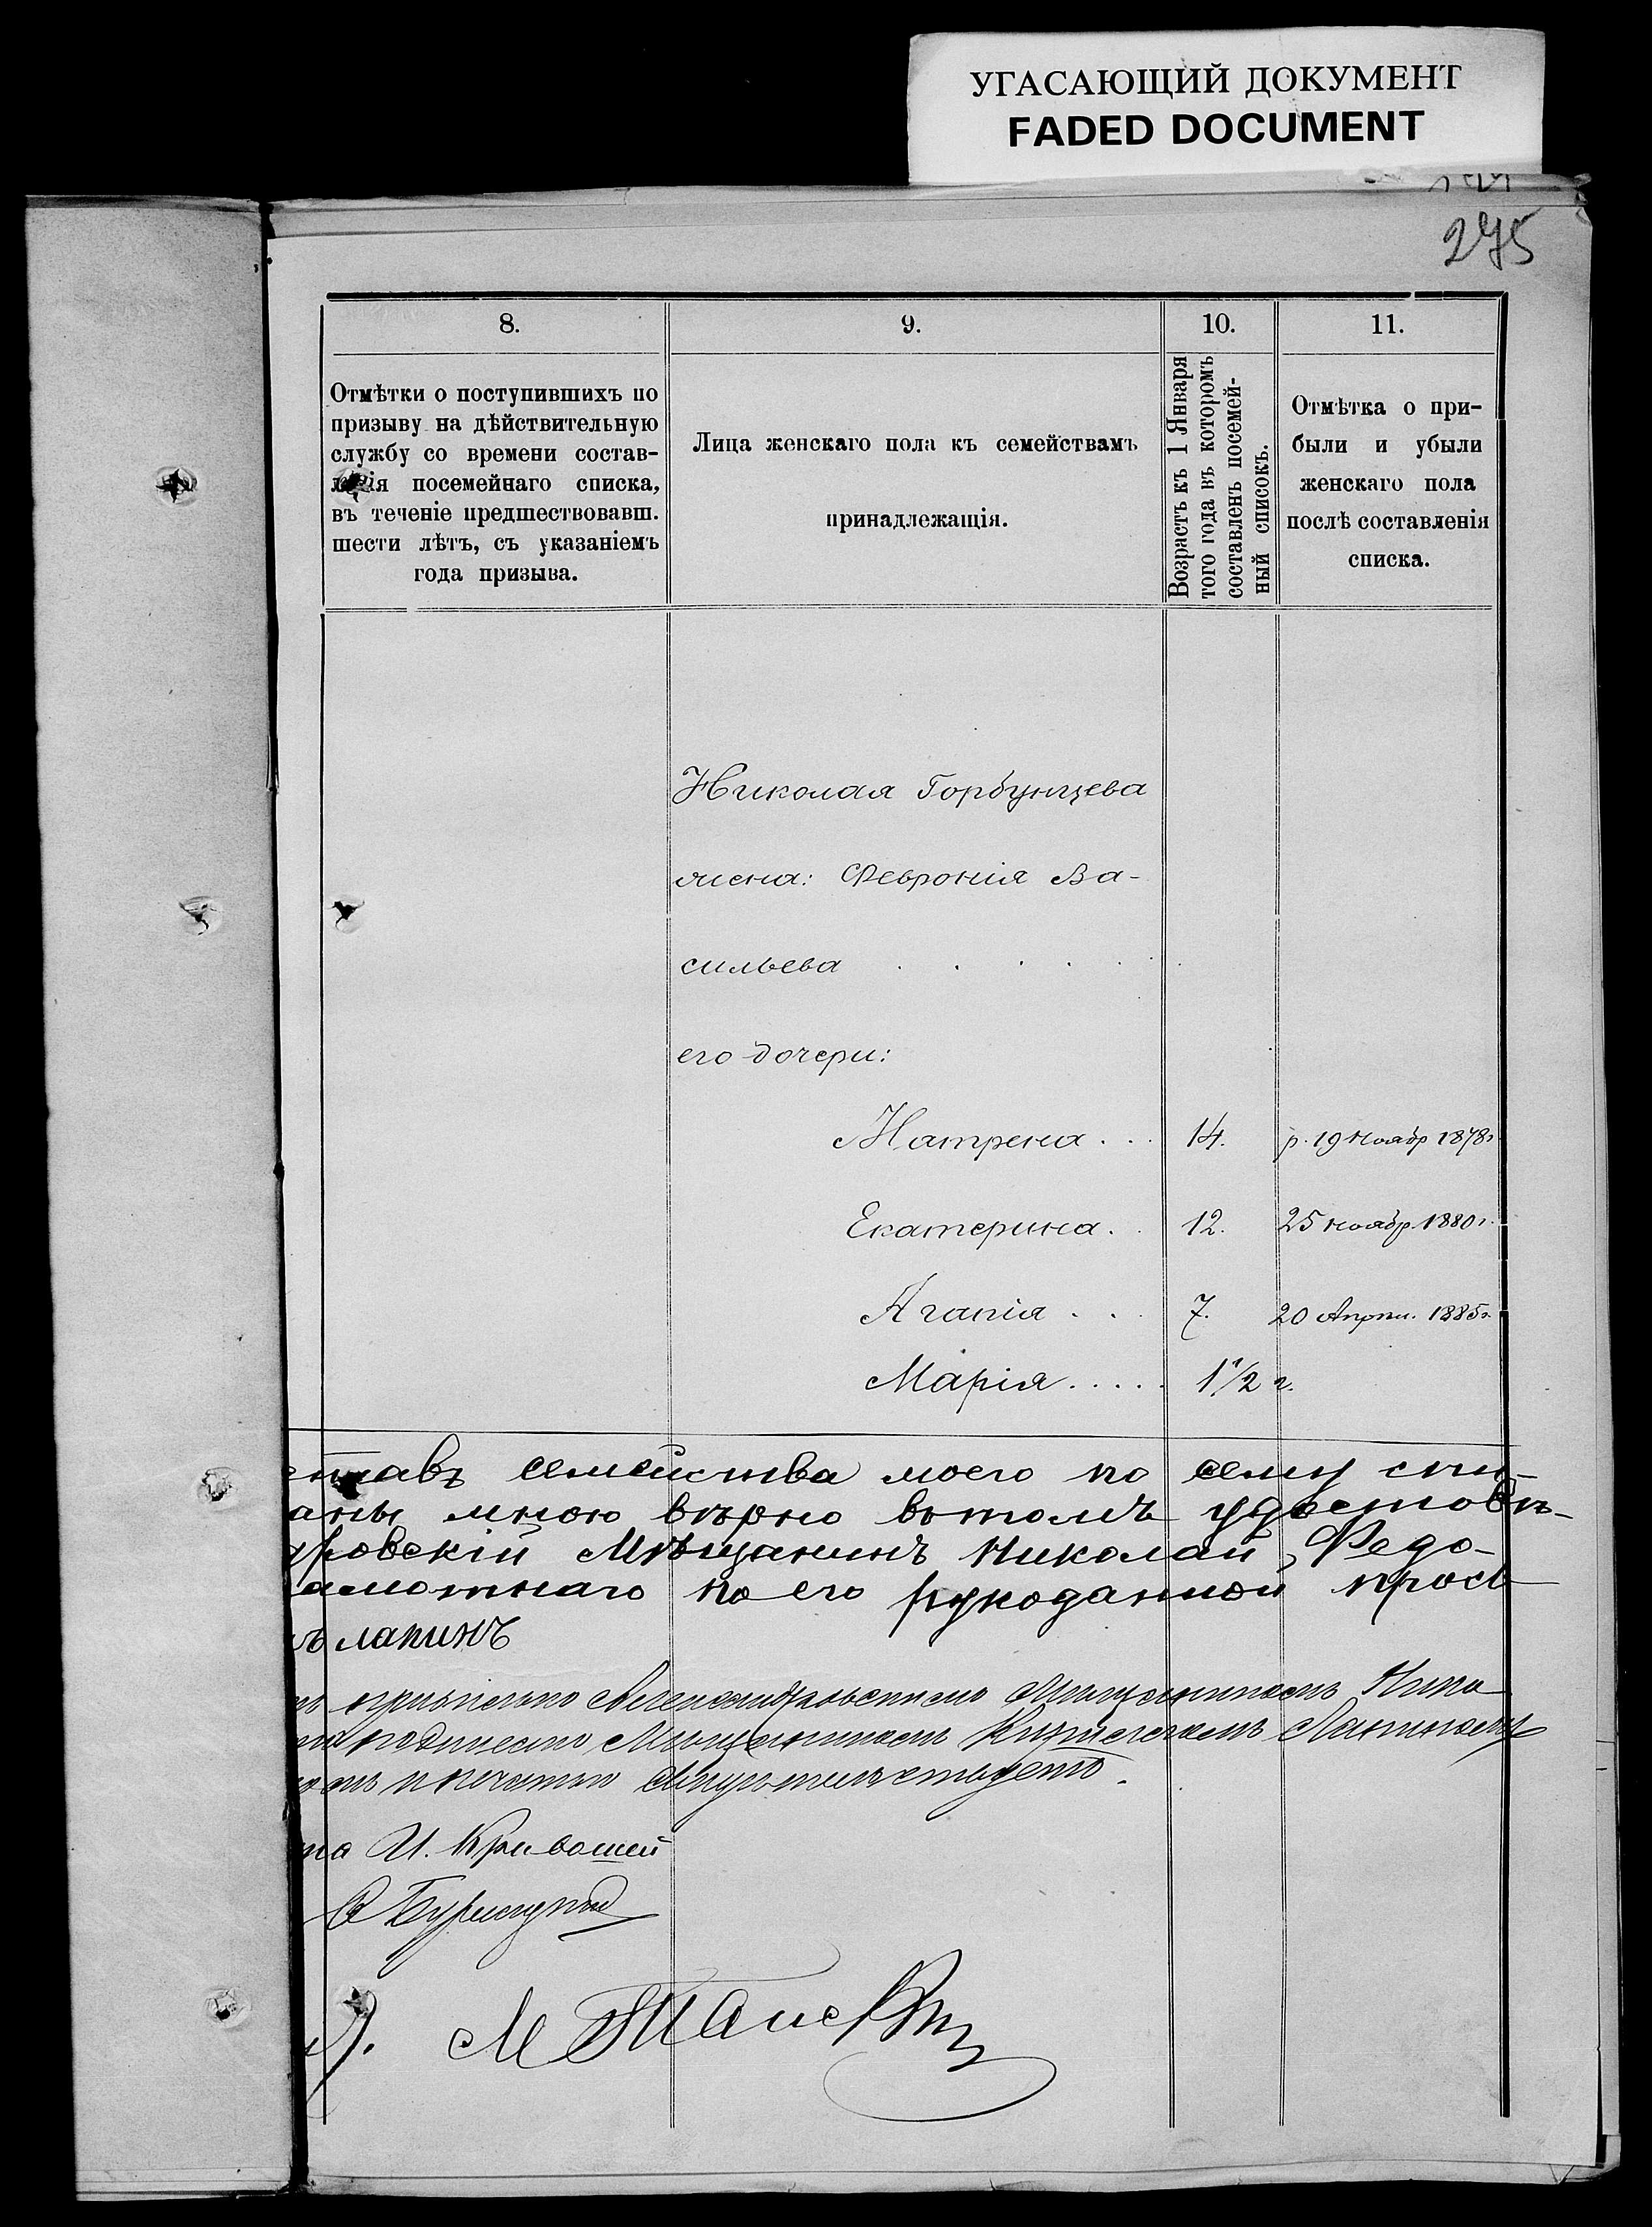 УГАСАЮЩИЙ ДОКУМЕНТ
FADED DOCUMENT
275
8.
Отмѣтки о поступившихъ по
призыву на дѣйствительную
службу со времени состав-
ленія посемейнаго списка,
въ теченіе предшествовавш.
шести лѣтъ, съ указаніемъ
года призыва.
9.
Лица женскаго пола къ семействамъ
принадлежащія.
10.
Возрастъ къ 1 Января
того года въ которомъ
составленъ посемей-
ный списокъ.
11.
Отмѣтка о при-
были и убыли
женскаго пола
послѣ составленія
списка.
Николая Горбунцева
жена: Феврония Ва-
сильева . . . . .
его дочери:
Матрена . . . 14. р. 19 Ноябр 1878г.
Екатерина . . 12. 25 Ноябр. 1880г.
Агапія . . . 7. 20 Апрѣл. 1885г.
Марія . . . . . 1 1/2 г.
ставъ семейства моего по сему спи-
аны мною вѣрно вътомъ удостовѣ-
дровскій Мѣщанинъ Николай Федо-
амотнаго по его рукоданной прось
ъ лапинъ
Мѣщаниномъ Нико
Мѣщаниномъ Лапинымъ
и печатью свидѣтельствуетъ.
та И. Кривошей
М